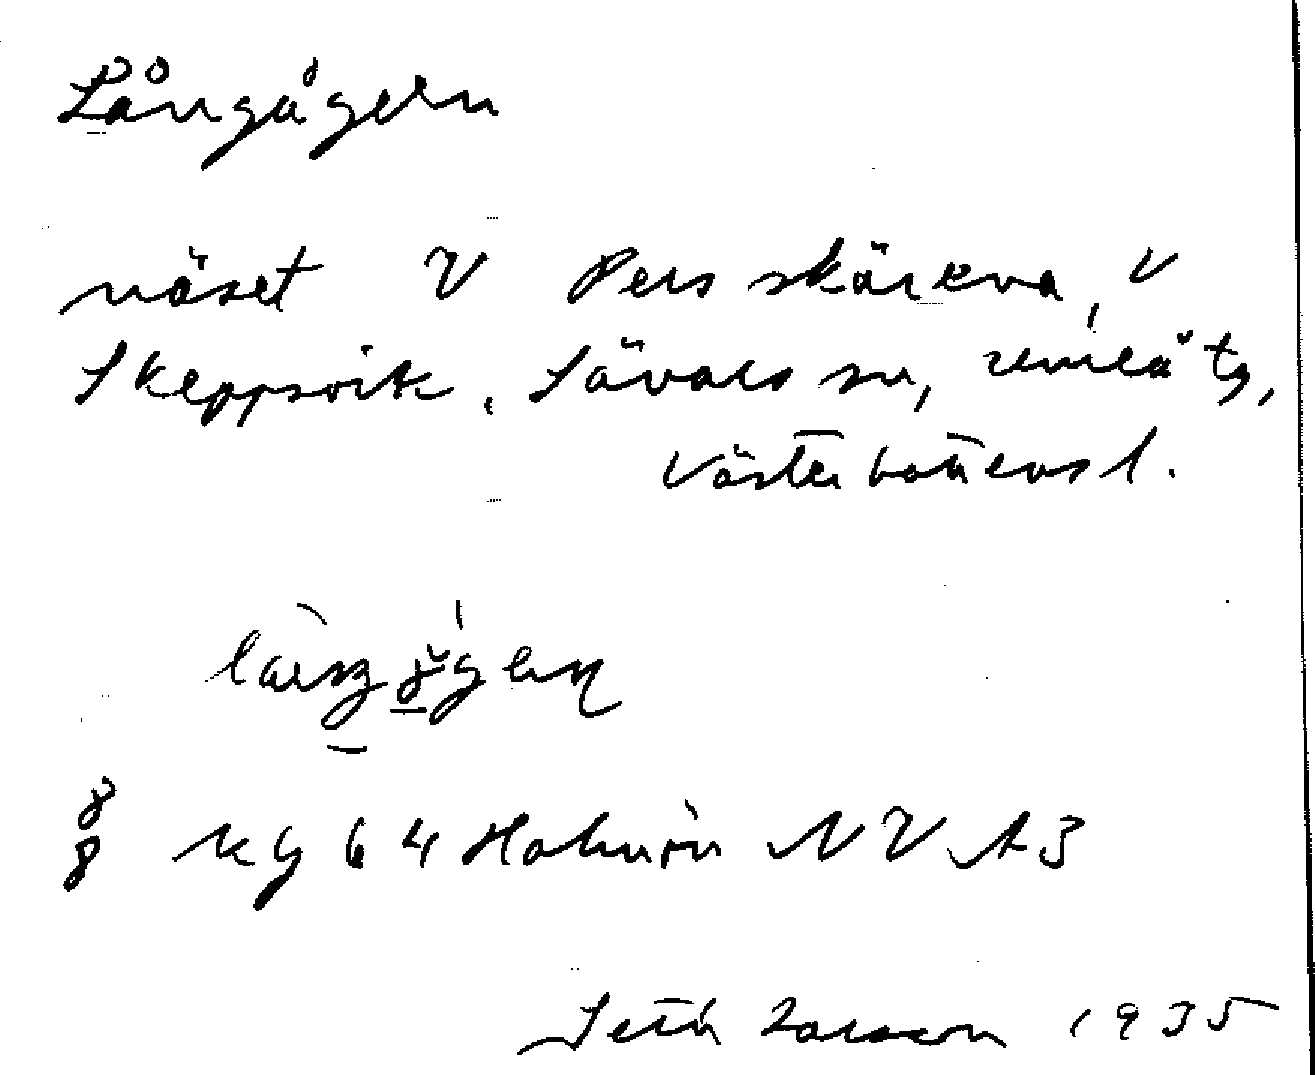 Långågern
näset V Persskären, V
Skeppsvik, Sävars sn, Umeå tg,
Västerbottens l.
kg 64 Holmön NV A3
Seth Larsson 1935